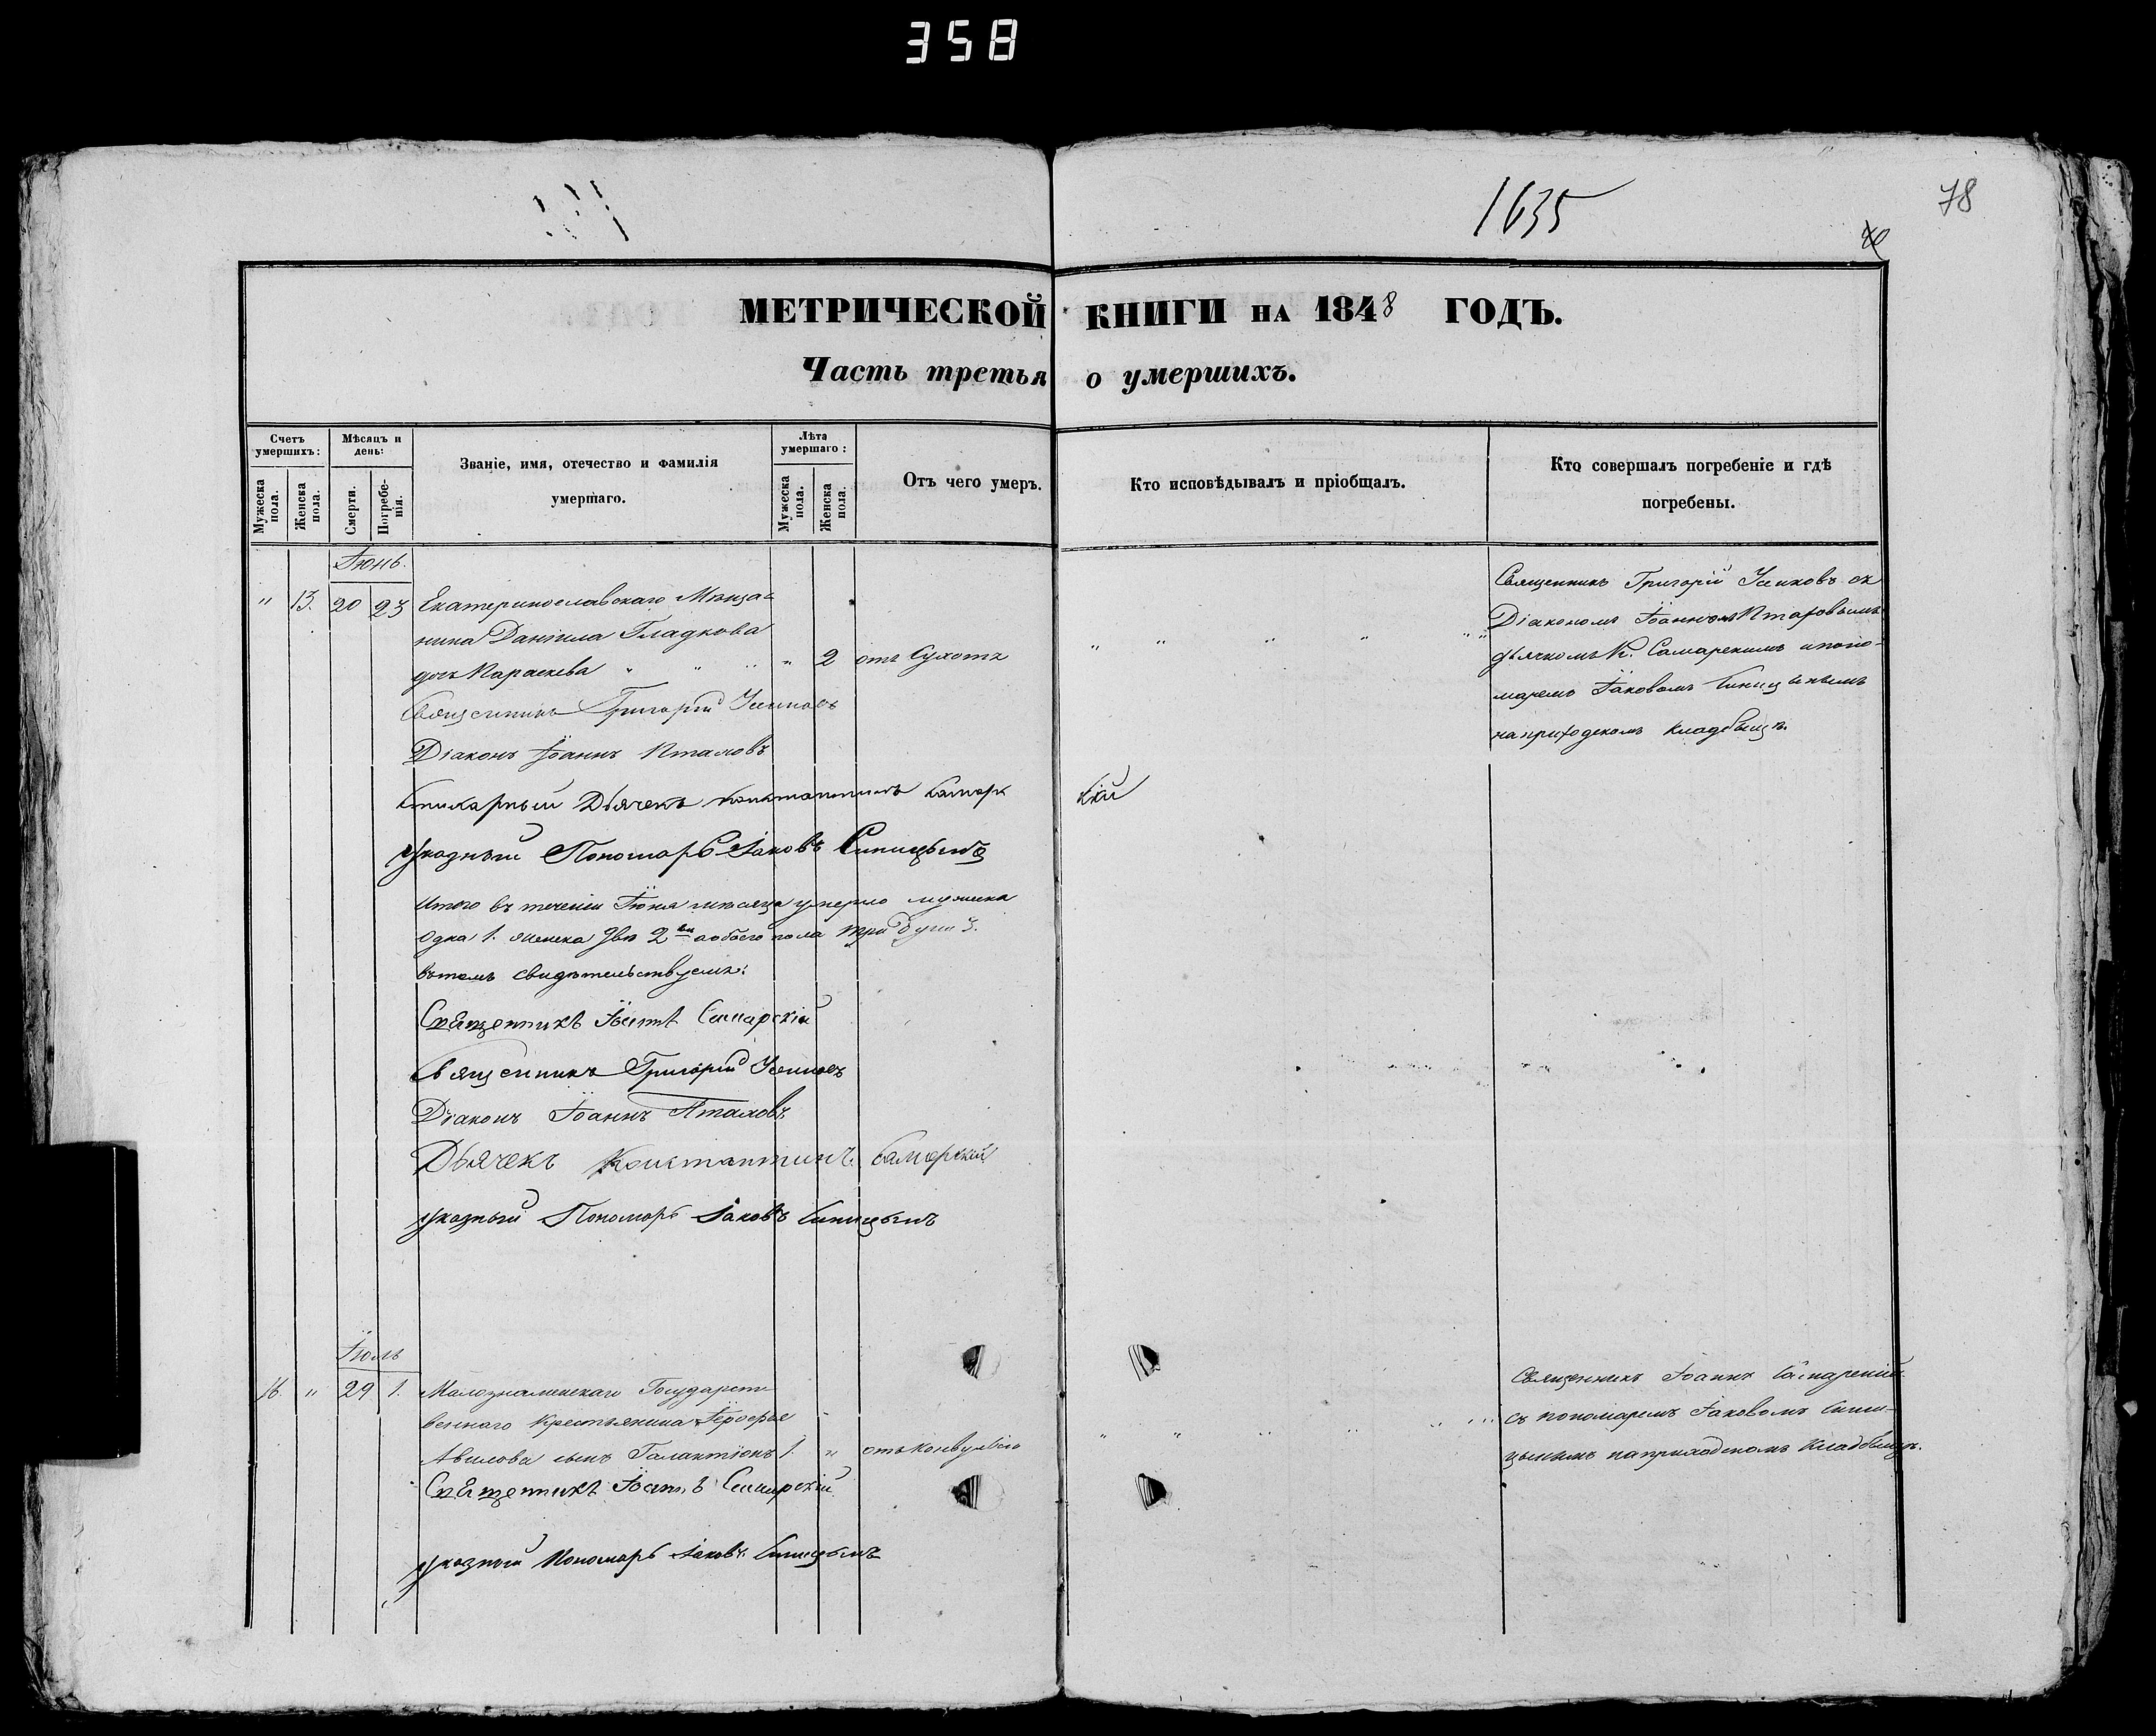 358
1635
78
МЕТРИЧЕСКОЙ КНИГИ НА 1848 ГОДЪ.
Часть третья о умершихъ.
Счетъ умершихъ:
Мужеска пола.
Женска пола.
Мѣсяцъ и день:
Смерти.
Погребенія.
Званіе, имя, отечество и фамилія
умершаго.
Лѣта умершаго:
Мужеска пола.
Женска пола.
Отъ чего умеръ.
Кто исповѣдывалъ и пріобщалъ.
Кто совершалъ погребеніе и гдѣ
погребены.
Іюнь.
" 13. 20 23 Екатеринославскаго Мѣща-
нина Даніила Гладкова
дочь Параскева " " " " 2 отъ Сухотъ
Священникъ Григорій
Діаконъ Іоаннъ
Стихарный Дьячекъ Константинъ Самарскій
указный Пономарь Іаковъ Синицынъ
Священникъ Григорій съ
Діакономъ Іоанномъ
дьячкомъ К. Самарскимъ и поно-
маремъ Іаковомъ Синицынымъ
на приходскомъ кладбищѣ.
Итого въ теченіи Іюня мѣсяца умерло мужеска
одна 1. женска двѣ 2 а обоего пола три души 3.
въ томъ свидѣтельствуемъ:
Священникъ Іоаннъ Самарскій
Священникъ Григорій
Діаконъ Іоаннъ
Дьячекъ Константинъ Самарскій
указный Пономарь Іаковъ Синицынъ
Іюль
16. " 29 1. Малознаменскаго Государст-
веннаго Крестьянина
Авилова сынъ Галактіонъ 1. " отъ конвульсіи
Священникъ Іоаннъ Самарскій
указный Пономарь Іаковъ Синицынъ
Священникъ Іоаннъ Самарскій
съ пономаремъ Іаковомъ Сини-
цынымъ на приходскомъ кладбищѣ.